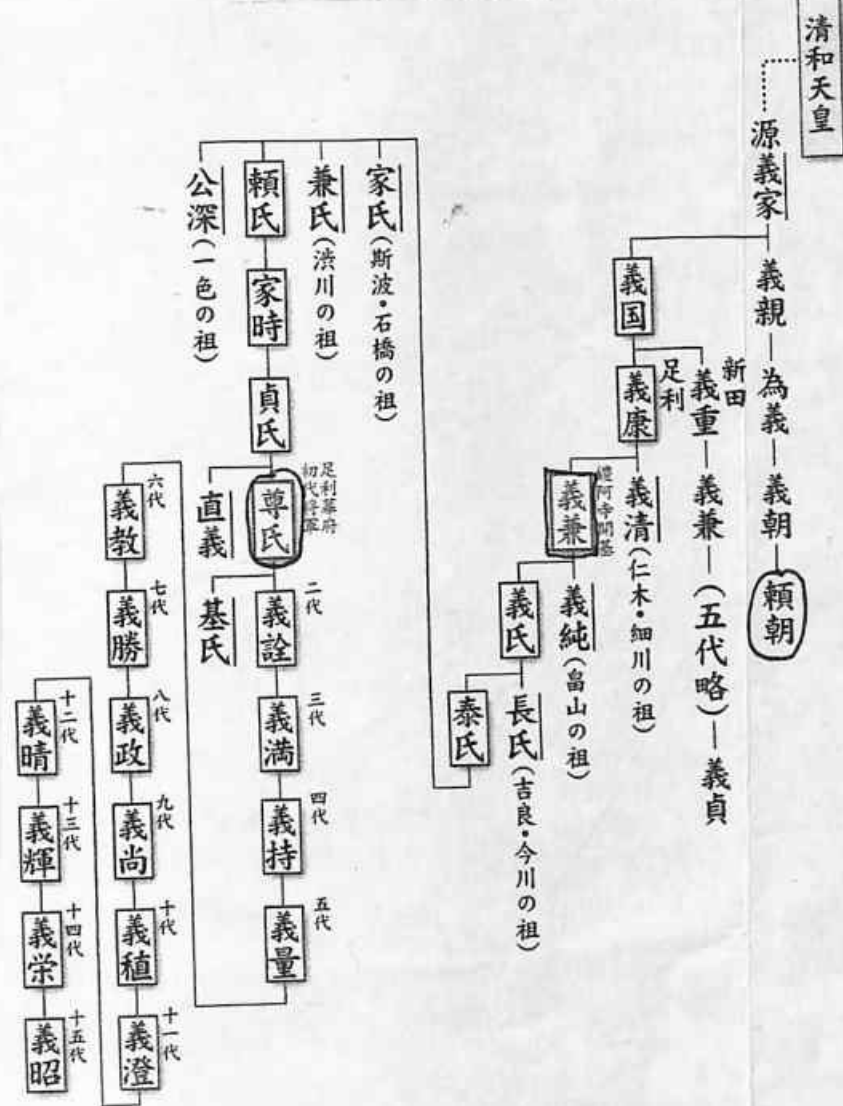 清和天皇
源義家
義親
為義
義朝
頼朝
義国
新田
義重
義兼
(五代略)
義貞
足利
義康
義清(仁木・細川の祖)
鑁阿寺開基
義兼
義純(畠山の祖)
義氏
長氏(吉良・今川の祖)
泰氏
家氏(斯波・石橋の祖)
兼氏(渋川の祖)
頼氏
公深(一色の祖)
家時
貞氏
足利幕府
初代将軍
尊氏
直義
二代
義詮
基氏
三代
義満
四代
義持
五代
義量
六代
義教
七代
義勝
八代
義政
九代
義尚
十代
義稙
十一代
義澄
十二代
義晴
十三代
義輝
十四代
義栄
十五代
義昭